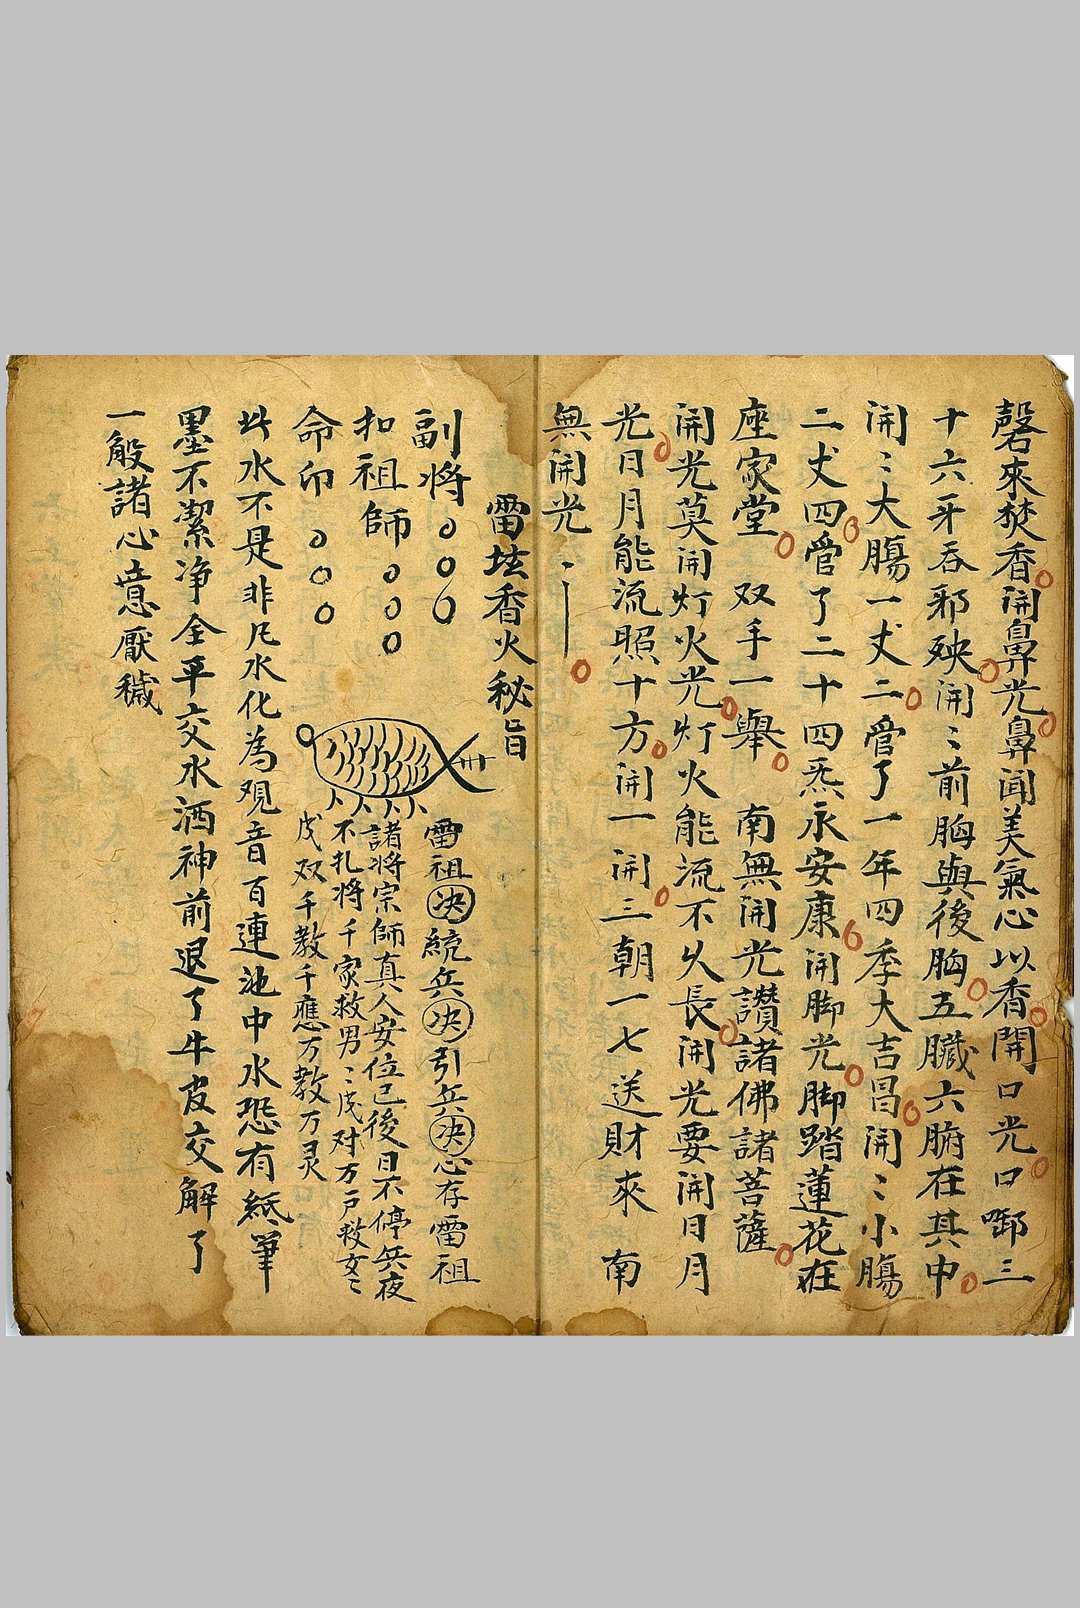 磬來焚香開鼻光鼻聞美氣心以香開口光口啣三
十六牙吞邪殃開〻前胸與後胸五臟六腑在其中
開〻大腸一丈二管了一年四季大吉昌開〻小腸
二丈四管了二十四炁永安康開脚光脚踏蓮花在
座家堂 双手一舉 南無開光讚諸佛諸菩薩
開光莫開灯火光灯火能流不久長開光要開日月
光日月能流照十方開一開三朝一七送財來 南
無開光
雷坛香火秘旨
副将
扣祖師
命印
雷祖决統兵决引兵决心存雷祖
諸将宗師真人安位已後日不停兵夜
不扎将千家救男〻成对万戸救女〻
成双千教千應万教万灵
此水不是非凡水化為观音百連池中水恐有紙筆
墨不潔净全平交水洒神前退了牛皮交解了
一般諸心意厭穢